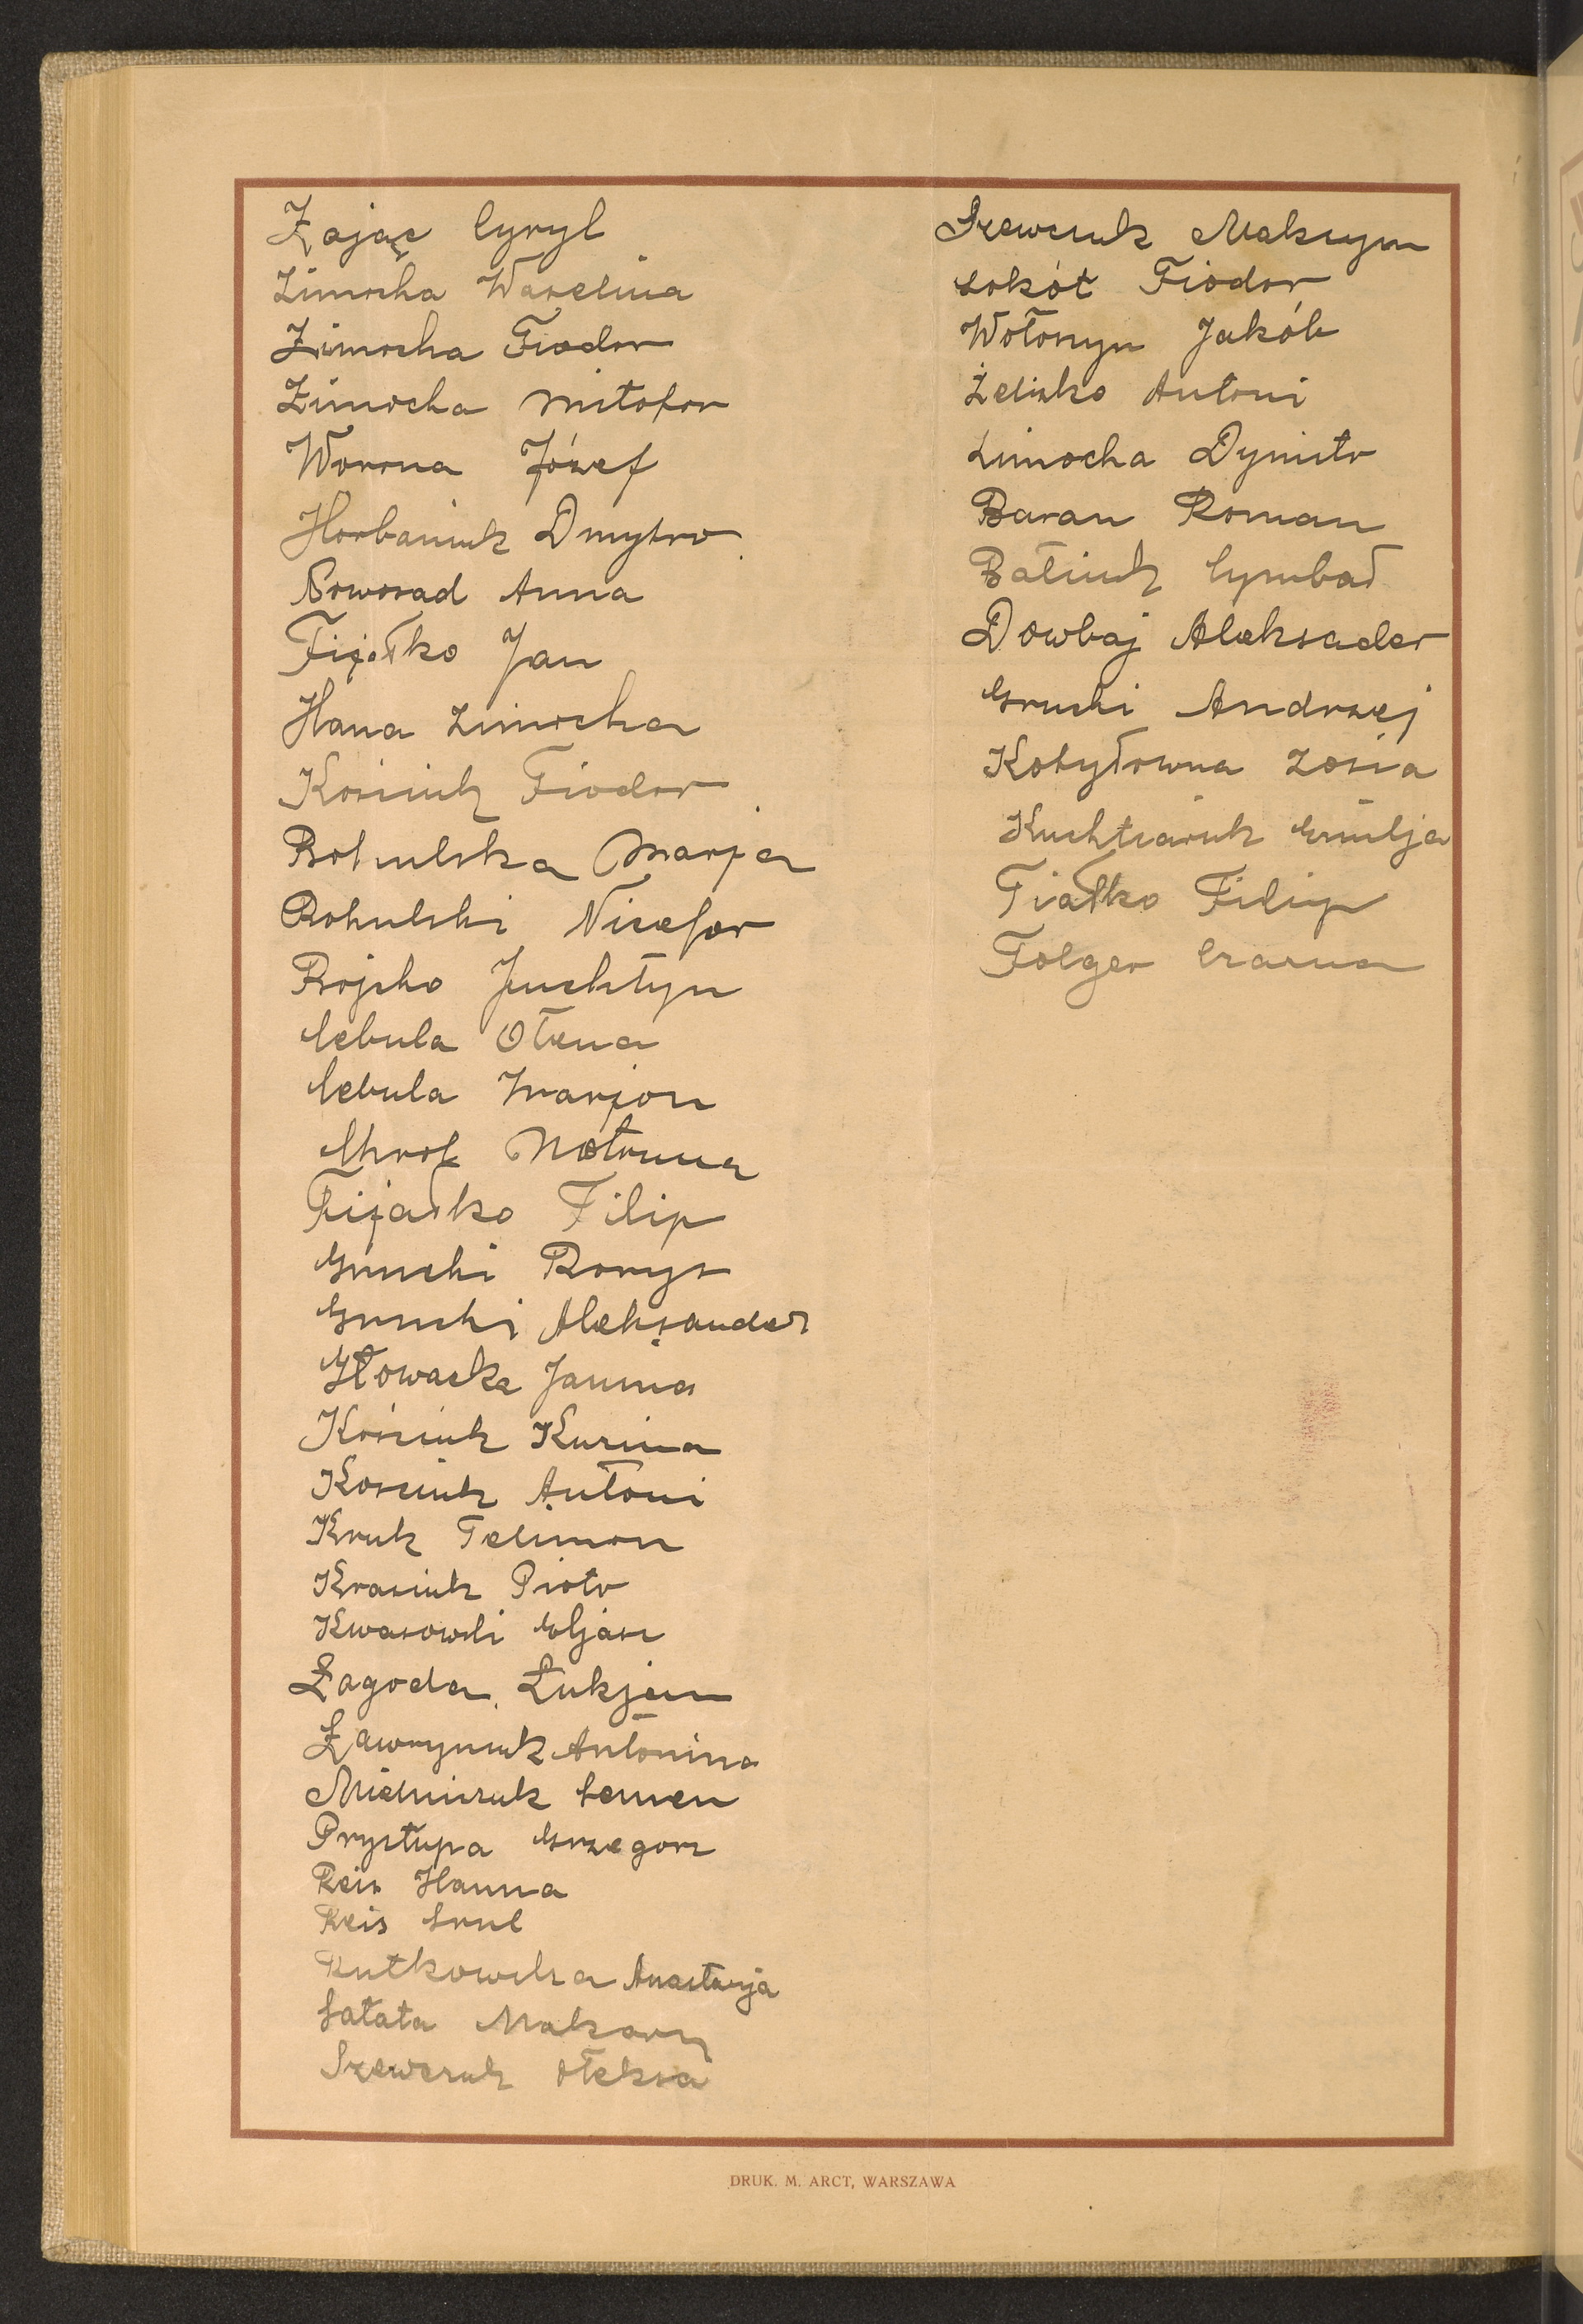 Zając Cyryl
Zimocha Waselina
Zimocha Fiodor
Zimocha Mitofor
Worona Józef
Horbaniuk Dmytro
Noworad Anna
Fijałko Jan
Hana Zimocha
Kosciuk Fiodor
Bohulska Marja
Bohulski Nicefor
Bojsko Juchtyn
Cebula Ołena
Cebula Marjon
Chrol Motruna
Fijałko Filip
Grucki Borys
Grucki Aleksander
Głowacka Janina
Kościuk Kuzina
Kosciuk Antoni
Kruk Felimon
Krasiuk Piotr
Kwasowski Eljasz
Łagoda Łukjan
Ławryniuk Antonina
Mielniczuk Semen
Prystupa Grzegorz
Reis Hanna
Reis Srul
Rutkowska Anastazja
Sałata Makary
Szewczuk Ołeksa
Szewczuk Maksym
Sokół Fiodor
Wołoszyn Jakób
Żeliszko Antoni
Zimocha Dymitr
Baran Roman
Batiuk Cymbał
Dowbaj Aleksader
Grucki Andrzej
Kobyłowna Zosia
Kuchciaruk Emilja
Fiałko Filip
Folger Czarna
DRUK. M. ARCT, WARSZAWA